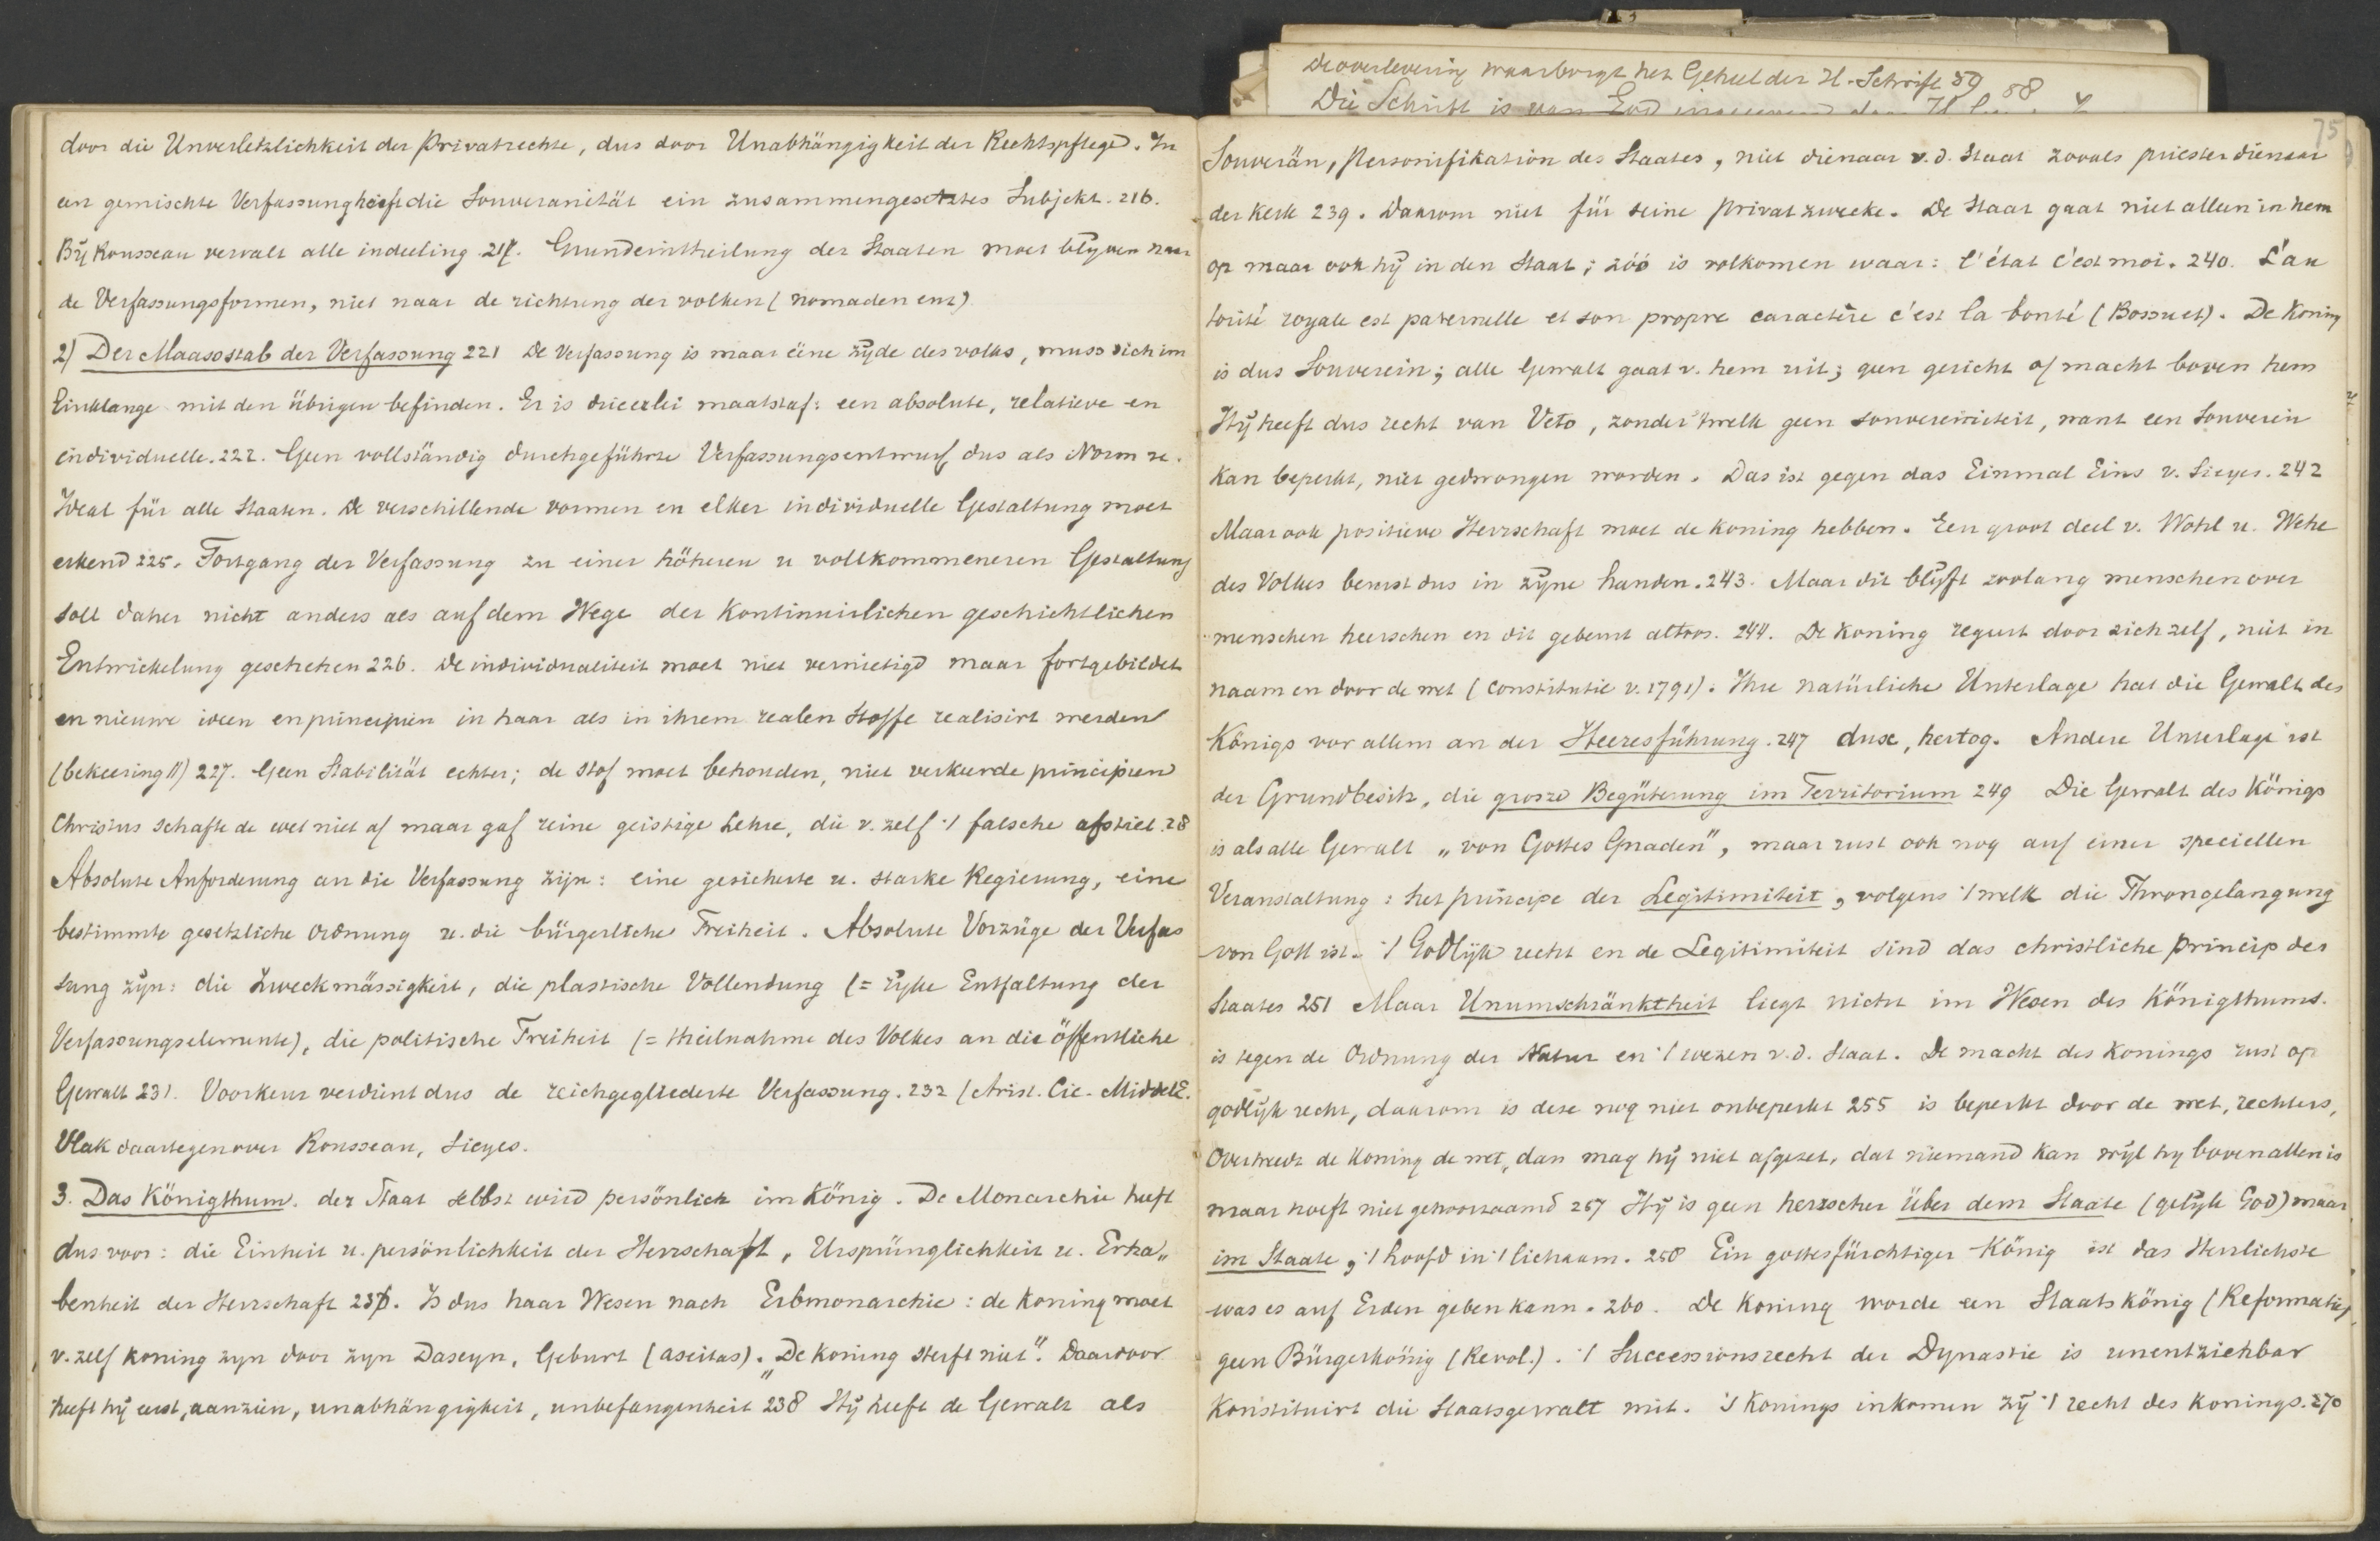 door die Unverletzlichkeit der Privatrechte, dus door Unabhängigkeit der Rechtspflege. In
een gemischte Verfassung heeft die Souveranität ein zusammengesetztes Subjekt. 216.
Bij Rousseau vervalt alle indeeling 217. Grundeintheilung der Staaten moet blijven naar
de Verfassungsformen, niet naar de richtung der volken (nomaden enz)
2) Der Maassstab der Verfassung 221 De Verfassung is maar ééne zijde des volks, muss sich im
Einklange mit den übrigen befinden. Er is drieërlei maatstaf: een absolute, relatieve en
individuelle. 222. Geen vollständig durchgeführte Verfassungsentwurf dus als Norm u.
Ideal für alle Staaten. De verschillende vormen en elker individuelle Gestaltung moet
erkend 225. Fortgang der Verfassung zu einer höheren u vollkommeneren Gestaltung
soll daher nicht anders als auf dem Wege der kontinuirlichen geschichtlichen
Entwickelung geschehen 226. De individualiteit moet niet vernietigd maar fortgebildet
en nieuwe ideen en principien in haar als in ihrem realen Stoffe realisirt werden
(bekeering!!) 227. Geen Stabilität echter; de stof moet behouden, niet verkeerde principien
Christus schafte de wet niet af maar gaf reine geistige Lehre, die v. zelf 't falsche afstiet. 28
Absolute Anforderung an die Verfassung zijn: eine gesicherte u. starke Regierung, eine
bestimmte gesetzliche Ordnung u. die bürgerliche Freiheit. Absolute Vorzüge der Verfas
sung zijn: die Zweckmässigkeit, die plastische Vollendung (= rijke Entfaltung der
Verfassungselemente), die politische Freiheit (= theilnahme des Volkes an die öffentliche
Gewalt 231. Voorkeur verdient dus de reichgegliederte Verfassung. 232 (Arist. Cic. MiddelE.
Vlak daartegenover Rousseau, Sieyes.
3. Das Königthum. der Staat selbst wird persönlich im König. De Monarchie heeft
dus voor: die Einheit u. persönlichkeit der Herrschaft, Ursprünglichkeit u. Erha„
benheit der Herrschaft 236. Is dus haar Wesen nach Erbmonarchie: de koning moet
v. zelf koning zyn door zyn Daseyn, Geburt (aseitas). „De koning sterft niet". Daardoor
heeft hij eerst, aanzien, unabhängigkeit, unbefangenheit 238 Hij heeft de Gewalt als
De overlevering waarborgt het Geheel der H. Schrift 59 58
Die Schrift is van God
75
Souverän, Personifikation des Staates, niet dienaar v. d. Staat zooals priester dienaar
der kerk 239. Daarom niet für seine Privatzwecke. De Staat gaat niet alleen in hem
op maar ook hij in den Staat; zóó is volkomen waar: l'état c'est moi. 240. L'au
torité royale est paternelle et son propre caractère c'est la bonté (Bossuet). De koning
is dus Souverein; alle Gewalt gaat v. hem uit; geen gericht of macht boven hem
Hij heeft dus recht van Veto, zonder 'twelk geen souvereiniteit, want een Souverein
kan beperkt, niet gedwongen worden. Das ist gegen das Einmal Eins v. Sieyes. 242
Maar ook positieve Herrschaft moet de koning hebben. Een groot deel v. Wohl u. Wehe
des Volkes berust dus in zijne handen. 243. Maar dit blijft zoolang menschen over
menschen heerschen en dit gebeurt altoos. 244. De koning regeert door zichzelf, niet in
naam en door de wet (constitutie v. 1791). Ihre natürliche Unterlage hat die Gewalt des
Königs vor allem an der Heeresführung. 247 dux, hertog. Andere Unterlage ist
der Grundbesitz, die grosze Begüterung im Territorium 249 Die Gewalt des Königs
is als alle Gewalt „von Gottes Gnaden", maar rust ook nog auf einer speciellen
Veranstaltung: het principe der Legitimiteit, volgens 't welk die Throngelangung
von Gott ist. 't Godlijk recht en de Legitimiteit sind das christliche princip des
Staates 251 Maar Unumschränktheit liegt nicht im Wesen des Königthums.
is tegen de Ordnung der Natur en 't wezen v. d. Staat. De macht des Konings rust op
godlijk recht, daarom is deze nog niet onbeperkt 255 is beperkt door de wet, rechters,
Overtreedt de koning de wet, dan mag hij niet afgezet, dat niemand kan wijl hy boven allen is
maar hoeft niet gehoorzaamd 257 Hij is geen herrscher über dem Staate (gelijk God) maar
im Staate, 't hoofd in 't lichaam. 258 Ein gottesfürchtiger König ist das Herrlichste
was es auf Erden geben kann. 260. De koning worde een Staatskönig (Reformatie)
geen Bürgerkönig (Revol.). 't Successionsrecht der Dynastie is unentziehbar
Konstituirt die Staatsgewalt mit. 's Konings inkomen zij 't recht des Konings. 270